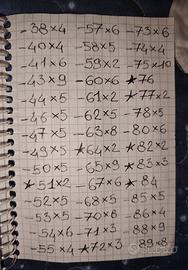 -38×4
-40×4
-41×6
-43×9
-44×5
-45×5
-46×5
-47×5
-49×5
-50×5
★51×2
-52×5
-53×5
-54×6
-55×4
-57×6
-58×5
-59×2
-60×6
-61×2
-62×5
-63×8
★64×2
-65×9
-67×6
-68×5
-70×8
-71×3
★72×3
-73×6
-74×4
-75×10
★76
★77×2
-78×5
-80×6
★82×2
★83×3
★84
-85×5
-86×4
-88×9
-89×8